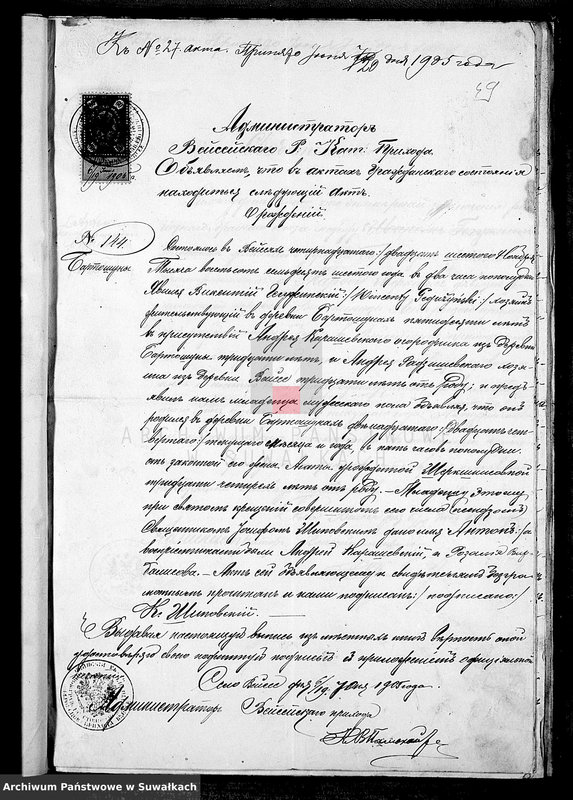 Къ № 27 акта. Принято Іюня 7/20 дня 1905 года
49
Администраторъ
Вейсейскаго Р. Кат. Прихода
Объявляетъ, что въ актахъ Гражданскаго состоянія
находиться слѣдующій актъ
О рожденій.
№ 144
Бартошуны
Состоялось въ Вейсеяхъ четырнадцатаго /двадцать шестого/ Ноября
Тысяча восемьсотъ семьдесят шестого года въ два часа пополудни.
Явился Викентій /Wincenty/ хозяинъ
жительствующій въ деревни Бартошунахъ пятидесяти лѣтъ
въ присутствіи Андрея Карашевскаго огородника изъ деревни
Бартошуны тридцати лѣтъ, и Андрея Радзишевскаго хозя-
ина изъ деревни Вейсе тридцати лѣтъ отъ роду; и предъ-
явилъ намъ младенца мужескаго пола объявляя, что онъ
родился въ деревни Бартошунахъ двѣнадцатаго /двадцать чет-
вертаго/ текущаго мѣсяца и года, въ пять часовъ пополудни
отъ законной его жены Анны урожденной
тридцати четырехъ лѣтъ отъ роду. — Младенцу этому
при святомъ крещеніи совершенномъ его числа
Священникомъ Іосифомъ Шиповскимъ дано имя Антонъ, а
воспріемниками были Андрей Карашевскій, и Розалія
— Актъ сей объявляющему и свидѣтелямъ негра-
мотнымъ прочитанъ и нами подписанъ /подписано/
Кс. Шиповскій. —
Выдавая настоящую выпись изъ актовъ вѣрность оной
удостовѣряю своею подписью и приложеніемъ официальной
печати
Село Вейсе дня 6/19 Іюня 1905 года.
Администраторъ Вейсейскаго прихода
ARCHIWUM PAŃSTWOWE
W SUWAŁKACH
Archiwum Państwowe w Suwałkach